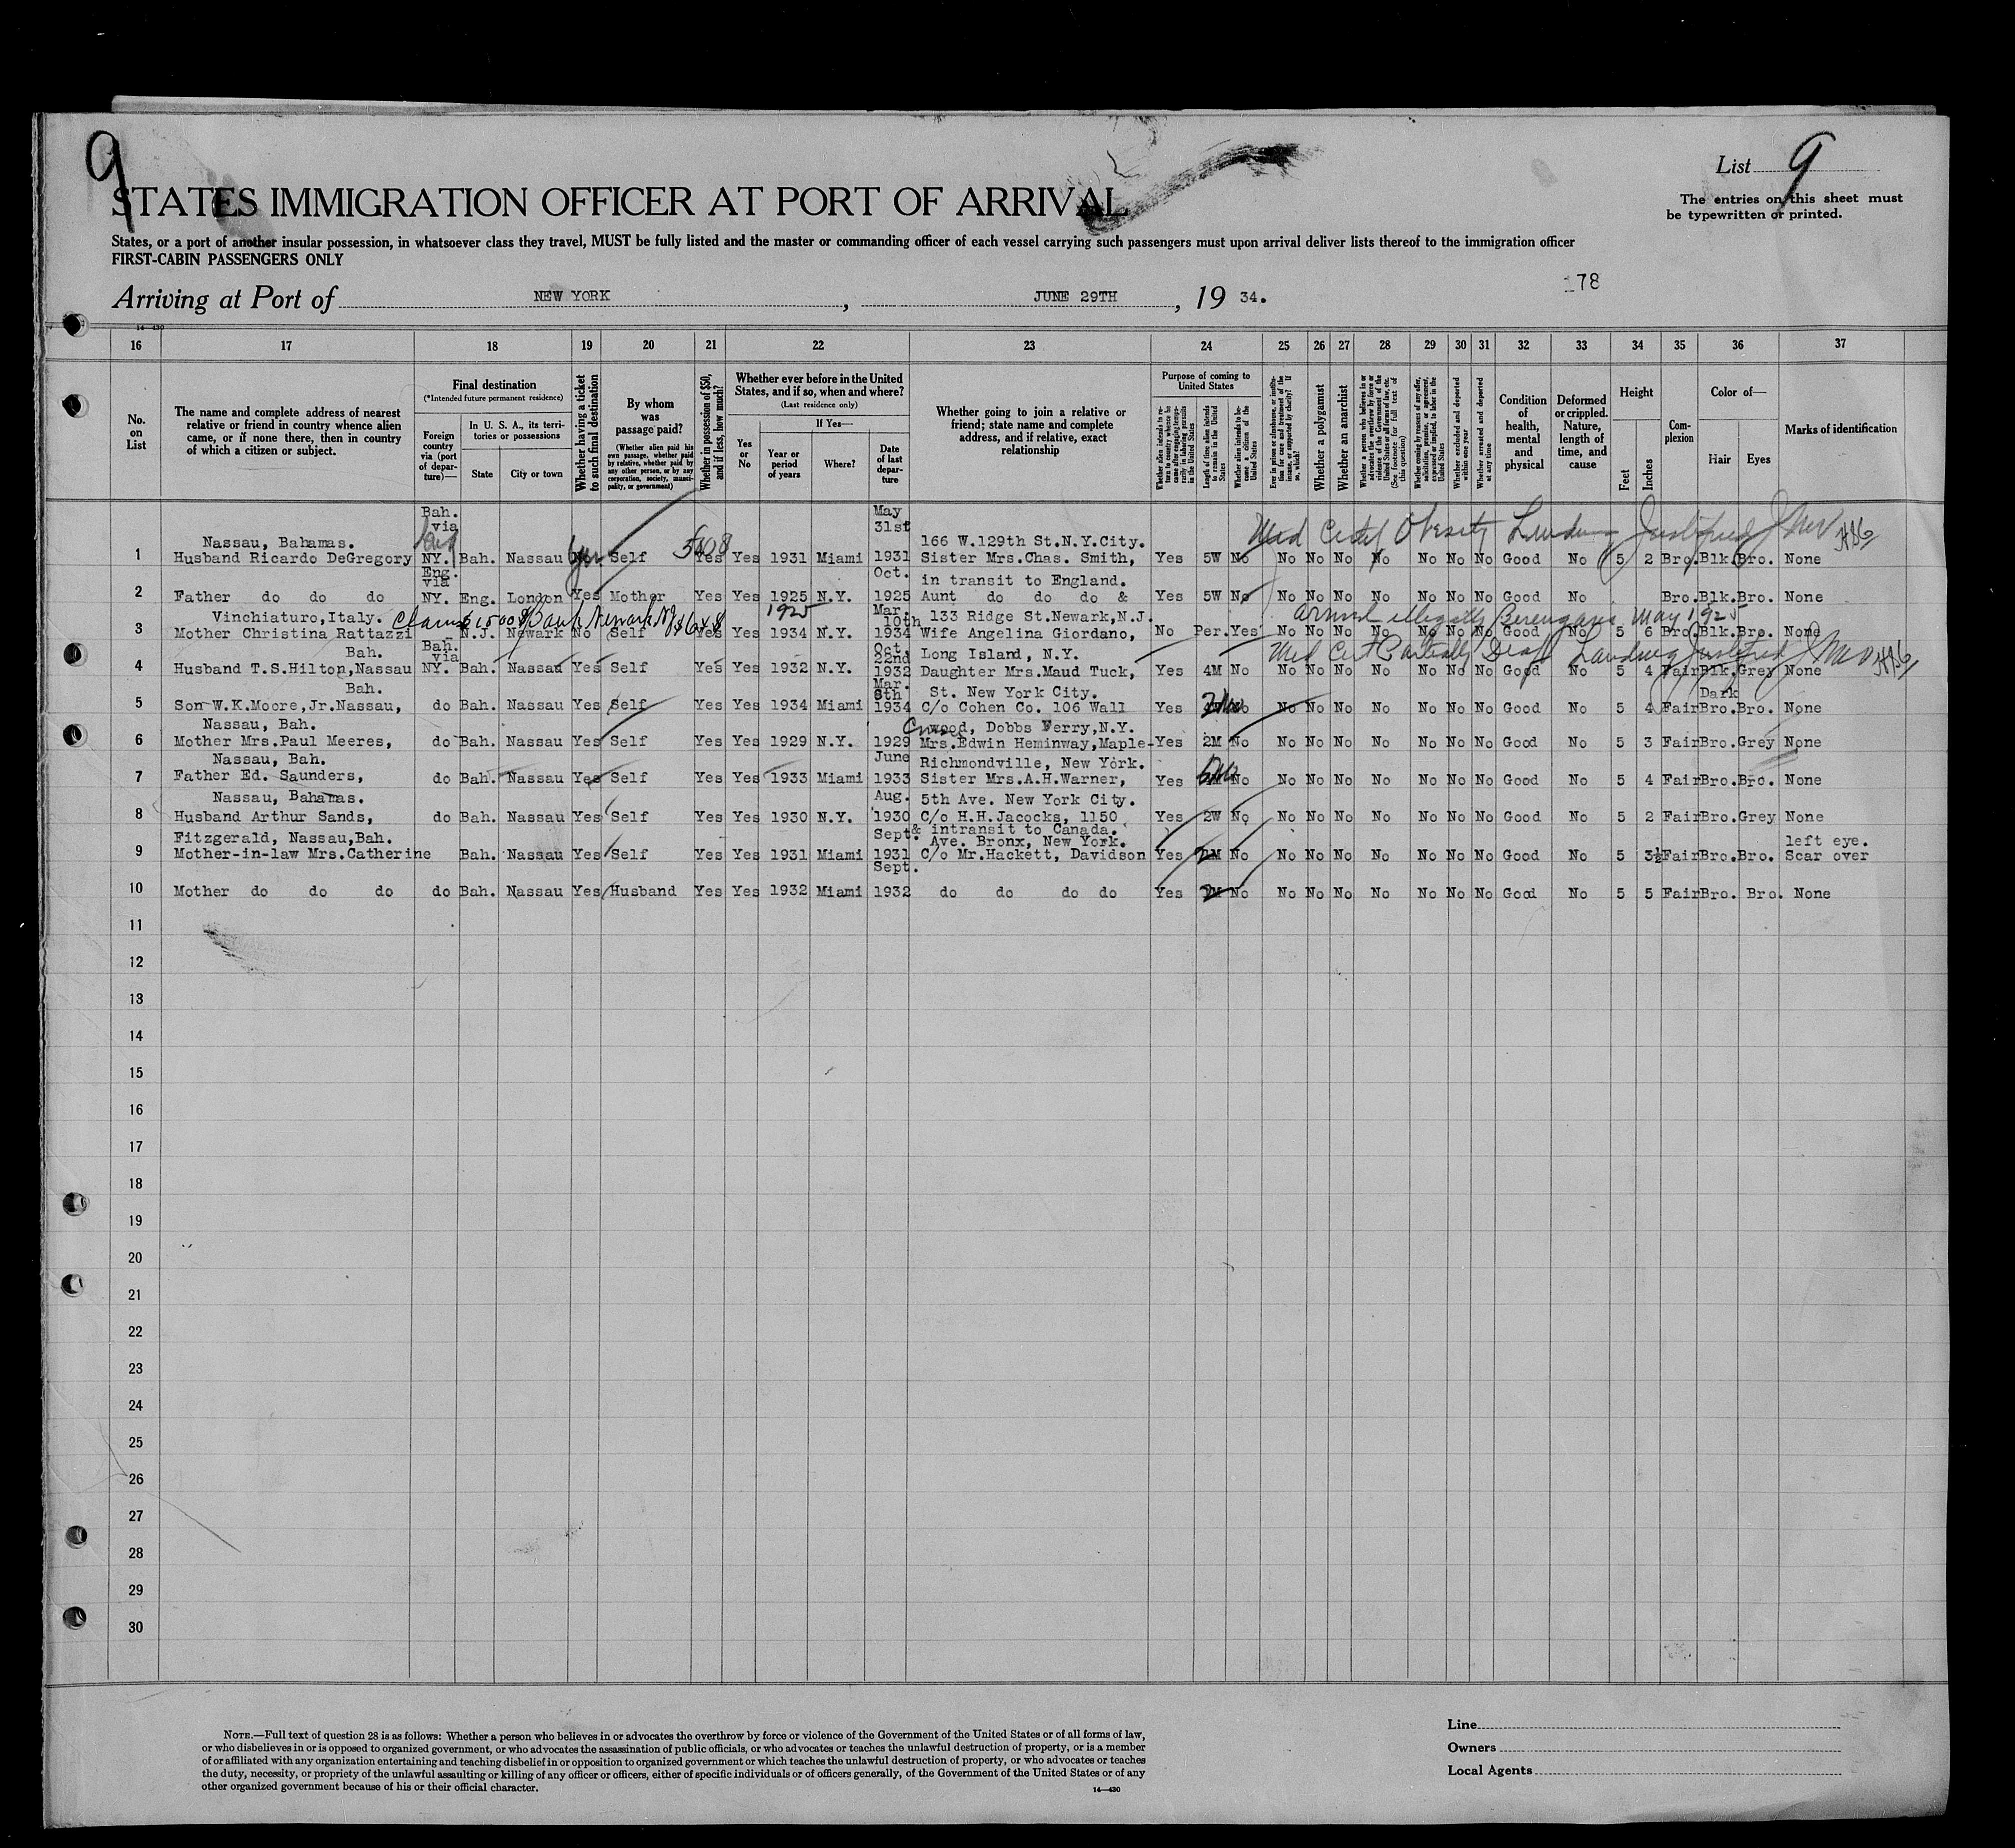 9
List 9
STATES IMMIGRATION OFFICER AT PORT OF ARRIVAL
The entries on this sheet must
be typewritten or printed.
States, or a port of another insular possession, in whatsoever class they travel, MUST be fully listed and the master or commanding officer of each vessel carrying such passengers must upon arrival deliver lists thereof to the immigration officer
FIRST-CABIN PASSENGERS ONLY
178
Arriving at Port of NEW YORK, JUNE 29TH, 19 34.
14—430
16 17 18 19 20 21 22 23 24 25 26 27 28 29 30 31 32 33 34 35 36 37
No. on List
The name and complete address of nearest
relative or friend in country whence alien
came, or if none there, then in country
of which a citizen or subject.
Final destination
(*Intended future permanent residence)
Foreign country via (port of departure)—
In U. S. A., its territories or possessions
State
City or town
Whether having a ticket to such final destination
By whom was passage paid?
(Whether alien paid his own passage, whether paid by relative, whether paid by any other person, or by any corporation, society, municipality, or government)
Whether in possession of $50, and if less, how much?
Whether ever before in the United
States, and if so, when and where?
(Last residence only)
Yes or No
If Yes—
Year or period of years
Where?
Date of last departure
Whether going to join a relative or
friend; state name and complete
address, and if relative, exact
relationship
Purpose of coming to United States
Length of time alien intends to remain in the United States
Whether alien intends to become a citizen of the United States
Whether a polygamist
Whether an anarchist
Whether excluded and deported within one year
Whether arrested and deported at any time
Condition of health, mental and physical
Deformed or crippled. Nature, length of time, and cause
Height
Feet
Inches
Complexion
Color of—
Hair
Eyes
Marks of identification
Bah. May
via 31st
Nassau, Bahamas. 166 W.129th St.N.Y.City. Med Certf Obesity Landing Justified
1 Husband Ricardo DeGregory NY. Bah. Nassau No Self Yes Yes 1931 Miami 1931 Sister Mrs.Chas. Smith, Yes 5W No No No No No No No No Good No 5 2 Bro. Blk. Bro. None
Eng. Oct.
via in transit to England.
2 Father do do do NY. Eng. London Yes Mother Yes Yes 1925 N.Y. 1925 Aunt do do do & Yes 5W No No No No No No No No Good No Bro. Blk. Bro. None
1925 Mar.
Vinchiaturo,Italy. 10th 133 Ridge St.Newark,N.J. Arrived illegally Berengaria May 1925
3 Mother Christina Rattazzi - N.J. Newark No Self Yes Yes 1934 N.Y. 1934 Wife Angelina Giordano, No Per. Yes No No No No No No No Good No 5 6 Bro. Blk. Bro. None
Bah. Bah. Oct.
via 22nd Long Island, N.Y. Med Cert Partially Deaf Landing Justified
4 Husband T.S.Hilton,Nassau NY. Bah. Nassau Yes Self Yes Yes 1932 N.Y. 1932 Daughter Mrs.Maud Tuck, Yes 4M No No No No No No No No Good No 5 4 Fair Blk. Grey None
Bah. Mar.
8th St. New York City. Dark
5 Son W.K.Moore,Jr.Nassau, do Bah. Nassau Yes Self Yes Yes 1934 Miami 1934 C/o Cohen Co. 106 Wall Yes No No No No No No No No Good No 5 4 Fair Bro. Bro. None
Nassau, Bah. wood, Dobbs Ferry,N.Y.
6 Mother Mrs.Paul Meeres, do Bah. Nassau Yes Self Yes Yes 1929 N.Y. 1929 Mrs.Edwin Heminway,Maple- Yes 2M No No No No No No No No Good No 5 3 Fair Bro. Grey None
Nassau, Bah. June Richmondville, New York.
7 Father Ed. Saunders, do Bah. Nassau Yes Self Yes Yes 1933 Miami 1933 Sister Mrs.A.H.Warner, Yes No No No No No No No No Good No 5 4 Fair Bro. Bro. None
Nassau, Bahamas. Aug. 5th Ave. New York City.
8 Husband Arthur Sands, do Bah. Nassau Yes Self Yes Yes 1930 N.Y. 1930 C/o H.H.Jacocks, 1150 Yes 2W No No No No No No No No Good No 5 2 Fair Bro. Grey None
& intransit to Canada.
Fitzgerald, Nassau,Bah. Sept. Ave. Bronx, New York. left eye.
9 Mother-in-law Mrs.Catherine Bah. Nassau Yes Self Yes Yes 1931 Miami 1931 C/o Mr.Hackett, Davidson Yes No No No No No No No No Good No 5 3½ Fair Bro. Bro. Scar over
Sept.
10 Mother do do do do Bah. Nassau Yes Husband Yes Yes 1932 Miami 1932 do do do do Yes No No No No No No No No Good No 5 5 Fair Bro. Bro. None
11
12
13
14
15
16
17
18
19
20
21
22
23
24
25
26
27
28
29
30
NOTE.—Full text of question 28 is as follows: Whether a person who believes in or advocates the overthrow by force or violence of the Government of the United States or of all forms of law,
or who disbelieves in or is opposed to organized government, or who advocates the assassination of public officials, or who advocates or teaches the unlawful destruction of property, or is a member
of or affiliated with any organization entertaining and teaching disbelief in or opposition to organized government or which teaches the unlawful destruction of property, or who advocates or teaches
the duty, necessity, or propriety of the unlawful assaulting or killing of any officer or officers, either of specific individuals or of officers generally, of the Government of the United States or of any
other organized government because of his or their official character.
14—430
Line
Owners
Local Agents